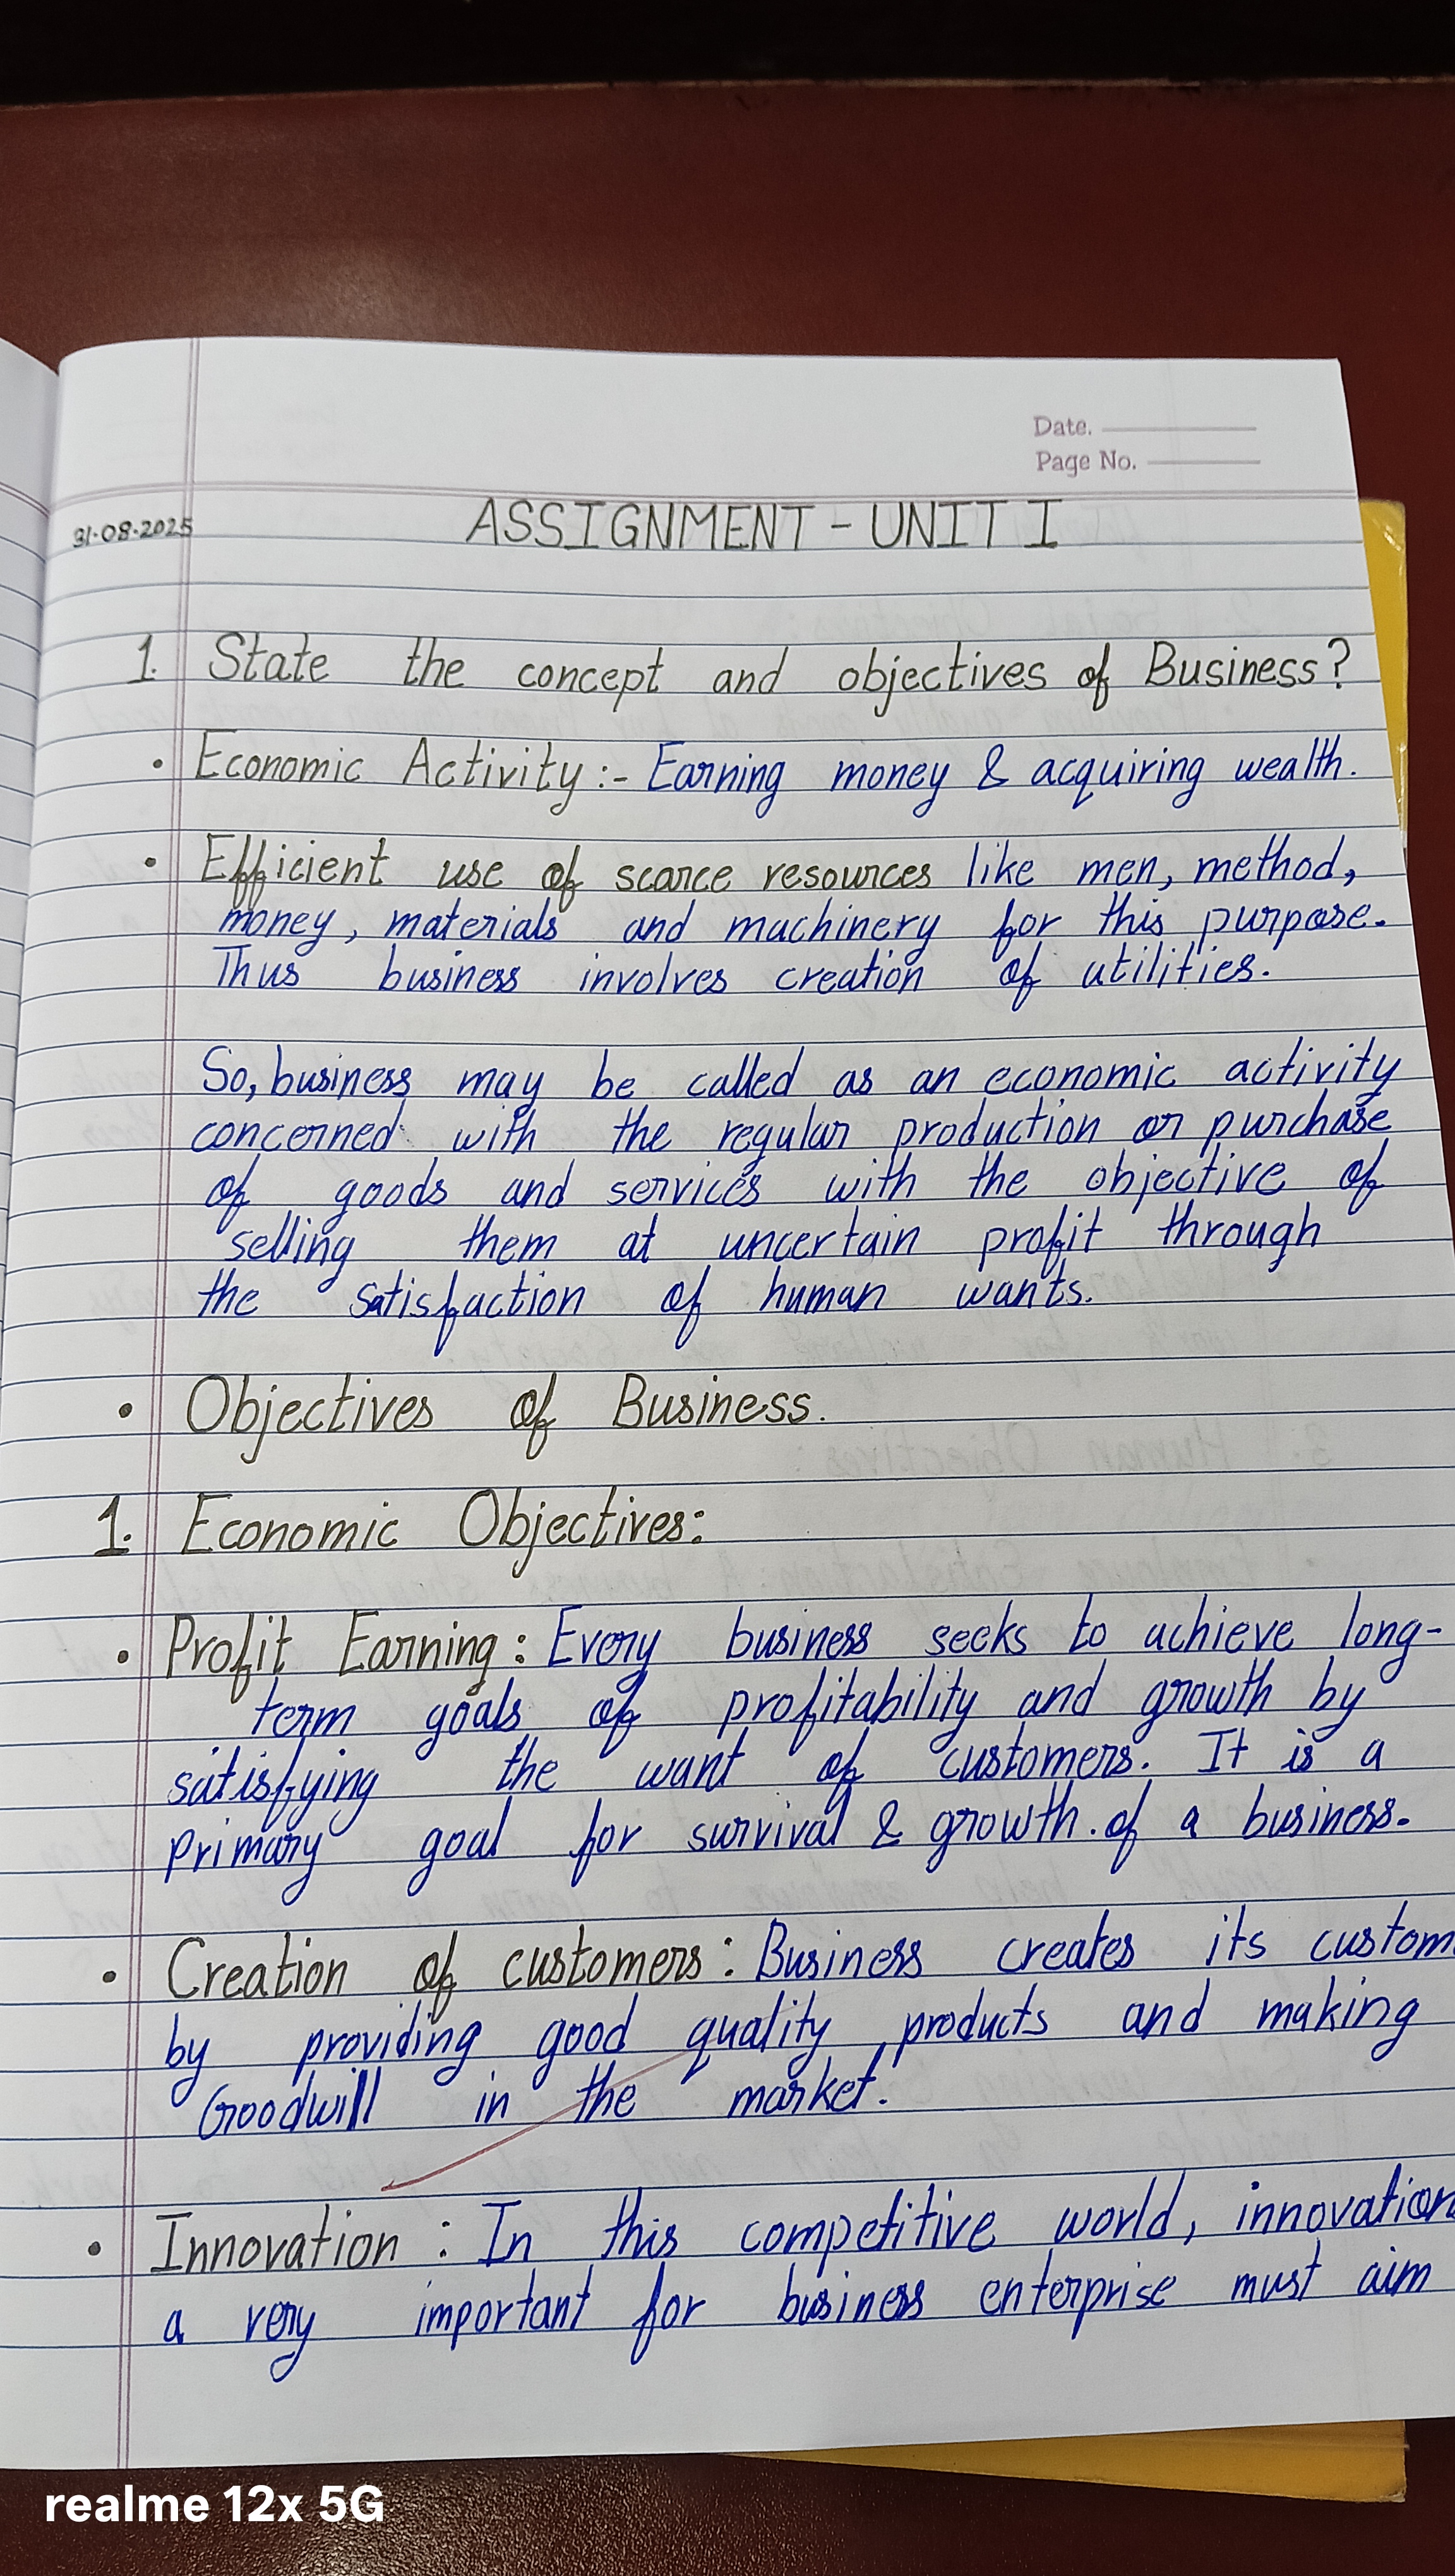 Date.
Page No.
31-08-2025
ASSIGNMENT - UNIT I
1. State the concept and objectives of Business?
• Economic Activity :- Earning money & acquiring wealth.
• Efficient use of scarce resources like men, method,
money, materials and machinery for this purpose.
Thus business involves creation of utilities.
So, business may be called as an economic activity
concerned with the regular production or purchase
of goods and services with the objective of
selling them at uncertain profit through
the satisfaction of human wants.
• Objectives of Business.
1. Economic Objectives:
• Profit Earning : Every business seeks to achieve long-
term goals of profitability and growth by
satisfying the want of customers. It is a
primary goal for survival & growth. of a business.
• Creation of customers : Business creates its custom
by providing good quality products and making
Goodwill in the market.
• Innovation : In this competitive world, innovation
a very important for business enterprise must aim
realme 12x 5G